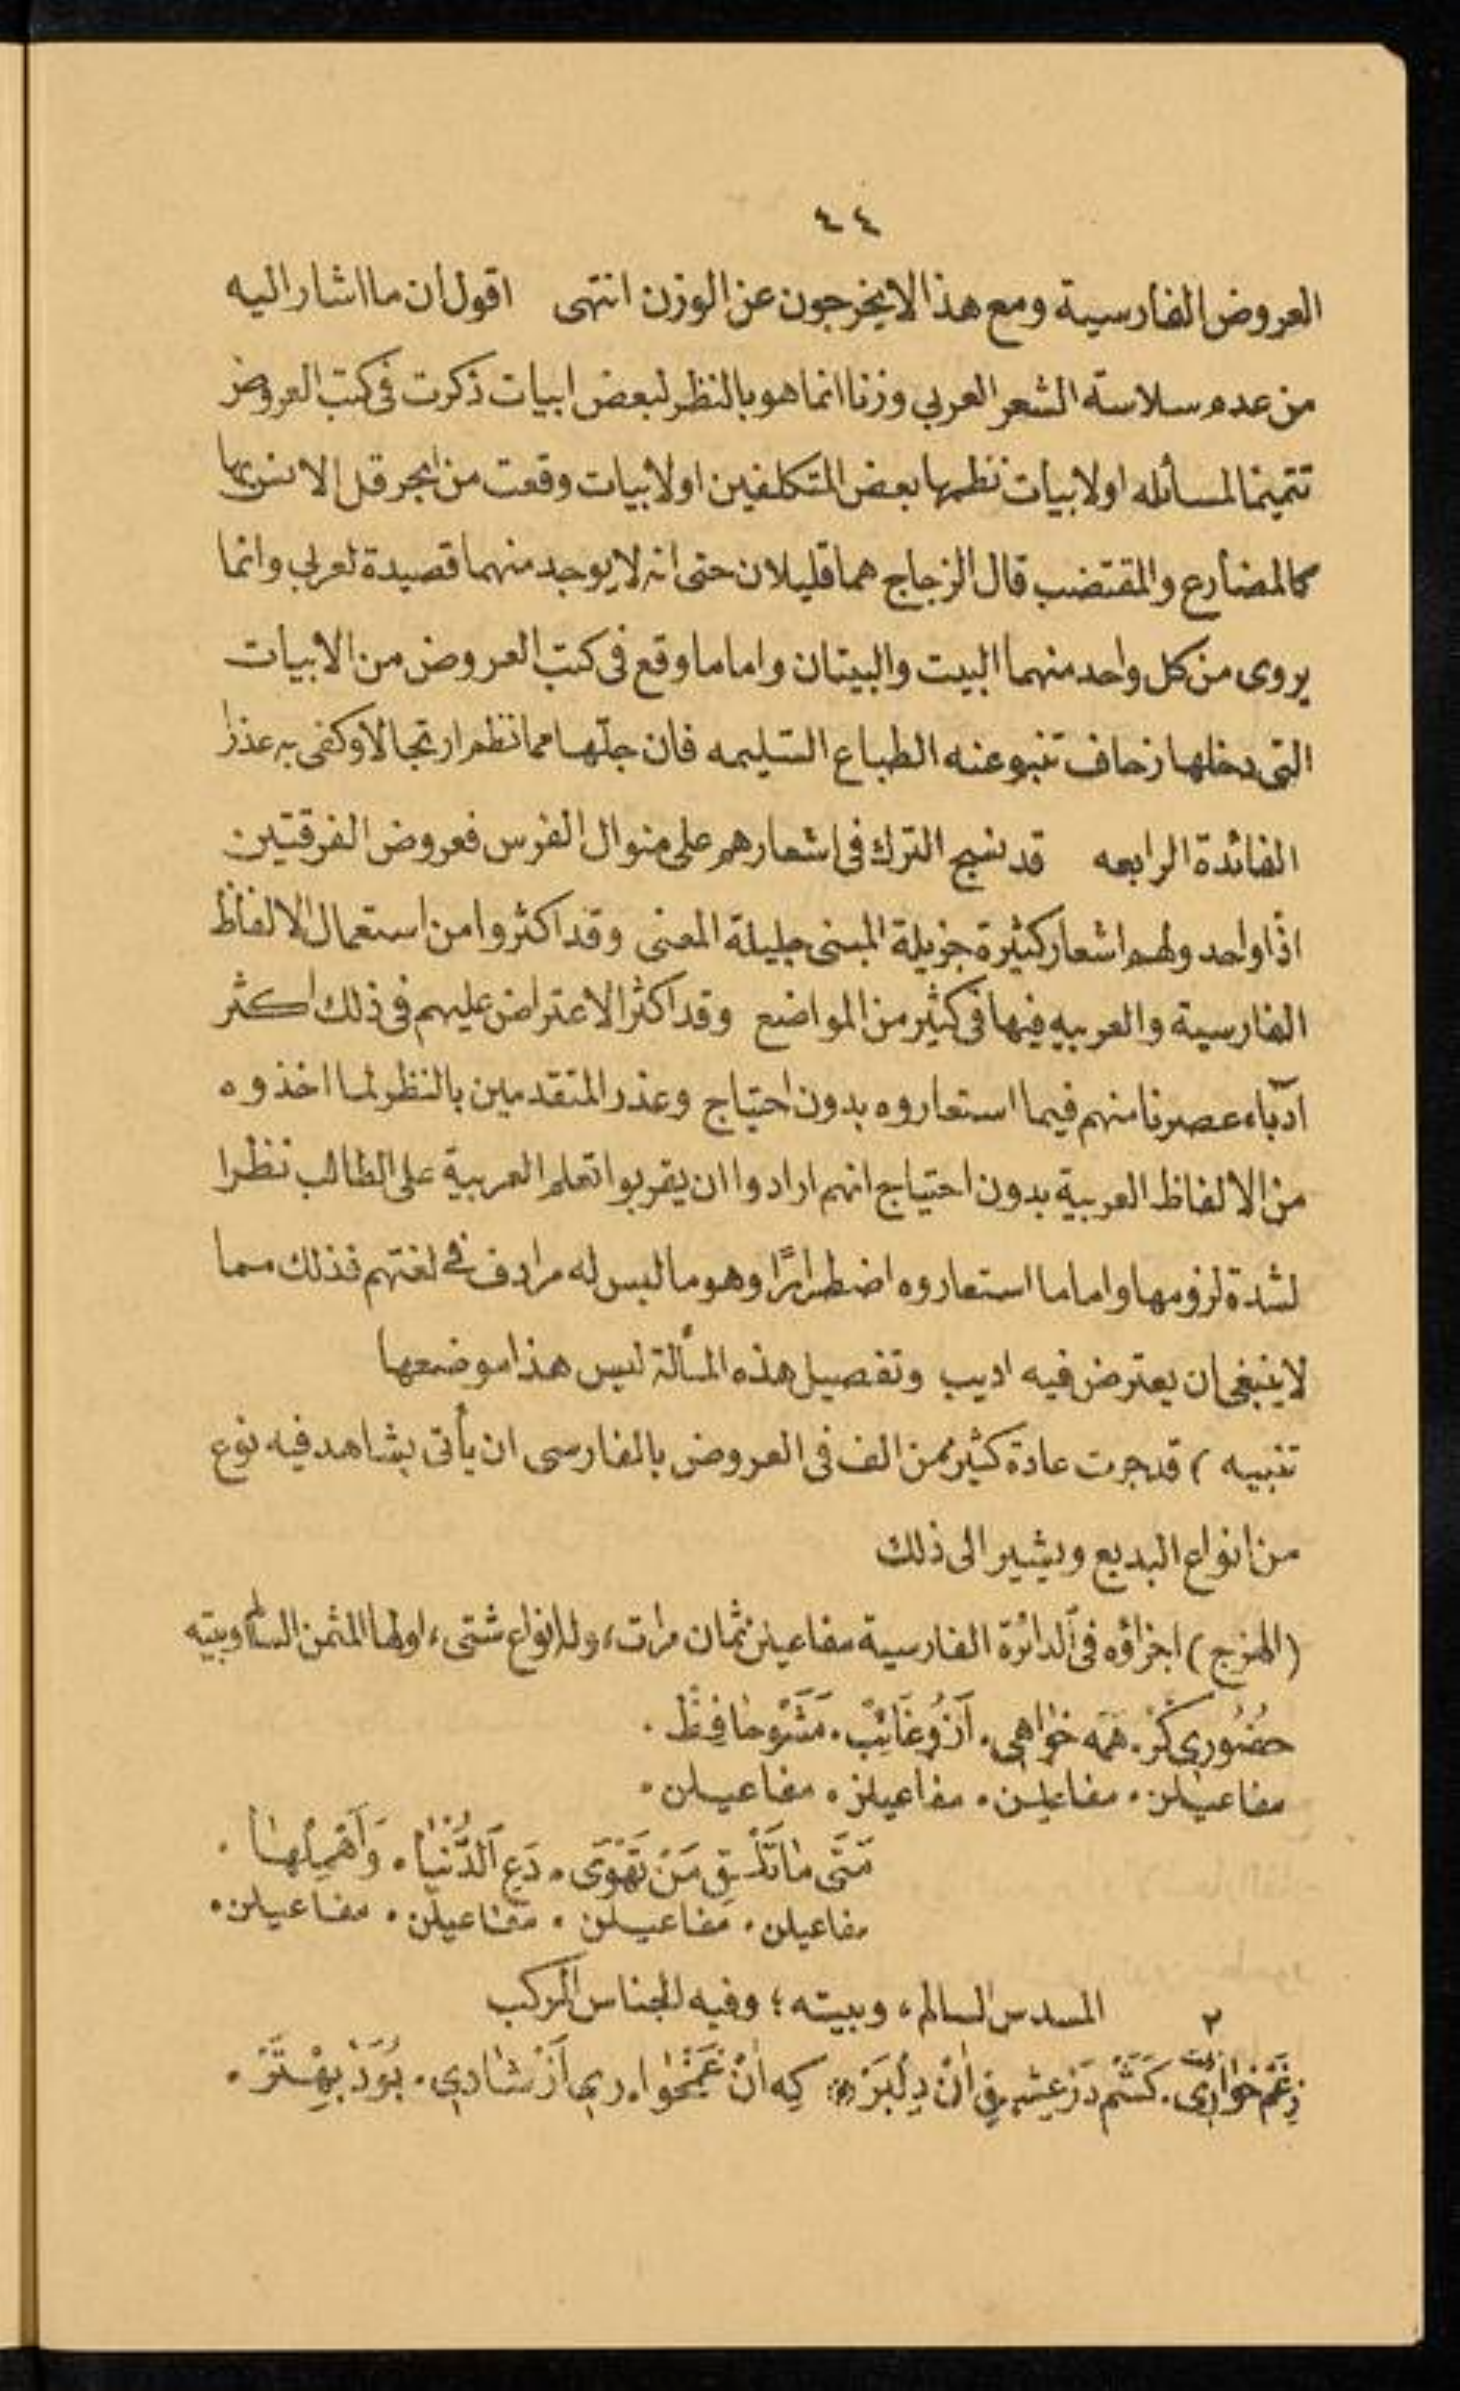 ٤٤
العروض الفارسية ومع هذا لا يخرجون عن الوزن انتهى اقول ان ما اشار اليه
من عدم سلاسة الشعر العربي وزنا انما هو بالنظر لبعض ابيات ذكرت في كتب العروض
تتميما لمسائله او لابيات نظمها بعض المتكلفين او لابيات وقعت من ابحر قل الانس بها
كالمضارع والمقتضب قال الزجاج هما قليلان حتى انه لا يوجد منهما قصيدة لعربي وانما
يروى من كل واحد منهما البيت والبيتان واما ما وقع في كتب العروض من الابيات
التي دخلها زحاف تنبو عنه الطباع السليمه فان جلّها مما نظم ارتجالا وكفى به عذرا
الفائدة الرابعه قد نسج الترك في اشعارهم على منوال الفرس فعروض الفرقتين
اذًا واحد ولهم اشعار كثيرة جزيلة المبنى جليلة المعنى وقد اكثروا من استعمال الالفاظ
الفارسية والعربيه فيها في كثير من المواضع وقد اكثر الاعتراض عليهم في ذلك اكثر
ادباء عصرنا منهم فيما استعاروه بدون احتياج وعذر المتقدمين بالنظر لما اخذوه
من الالفاظ العربية بدون احتياج انهم ارادوا ان يقربوا تعلم العربية على الطالب نظرا
لشدة لزومها واما ما استعاروه اضطرارًا وهو ما ليس له مرادف في لغتهم فذلك مما
لا ينبغي ان يعترض فيه اديب وتفصيل هذه المسألة ليس هذا موضعها
تنبيه ) قد جرت عادة كثير ممن الف في العروض بالفارسى ان يأتى بشاهد فيه نوع
من انواع البديع ويشير الى ذلك
(الهزج) اجزاؤه في الدائرة الفارسية مفاعيلن ثمان مرات، وله انواع شتى، اولها المثمن السالم وبيته
حُضُوري گَرْ. هَمَه خواهي. اَزُو غَائِبْ. مَشَوْ حَافِظْ.
مفاعيلن. مفاعيلن. مفاعيلن. مفاعيلن.
مَتَى مَا تَلْقَ مَنْ تَهْوَى. دَعِ اَلدُّنْيَا. وَاَهْمِلْهَا.
مفاعيلن. مفاعيلن. مفاعيلن. مفاعيلن.
٢ المسدس السالم، وبيته؛ وفيه الجناس المركب
زِغَمْ خَوارِي. كَشَمْ دَرْ عِشـقِ انْ دِلْبَرْ كِه انْ غَمْخوارِي اَزْ شادي. بُوَدْ بِهْتَرْ.